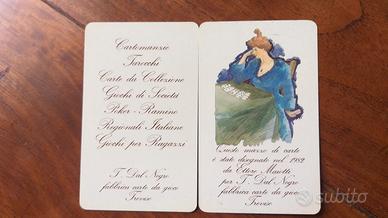 Cartomanzie
Tarocchi
Carte da Collezione
Giochi di Società
Poker - Ramino
Regionali Italiane
Giochi per Ragazzi
T. Dal Negro
fabbrica carte da gioco
Treviso
Questo mazzo di carte
è stato disegnato nel 1982
da Ettore Maiotti
per T. Dal Negro
fabbrica carte da gioco
Treviso
subito